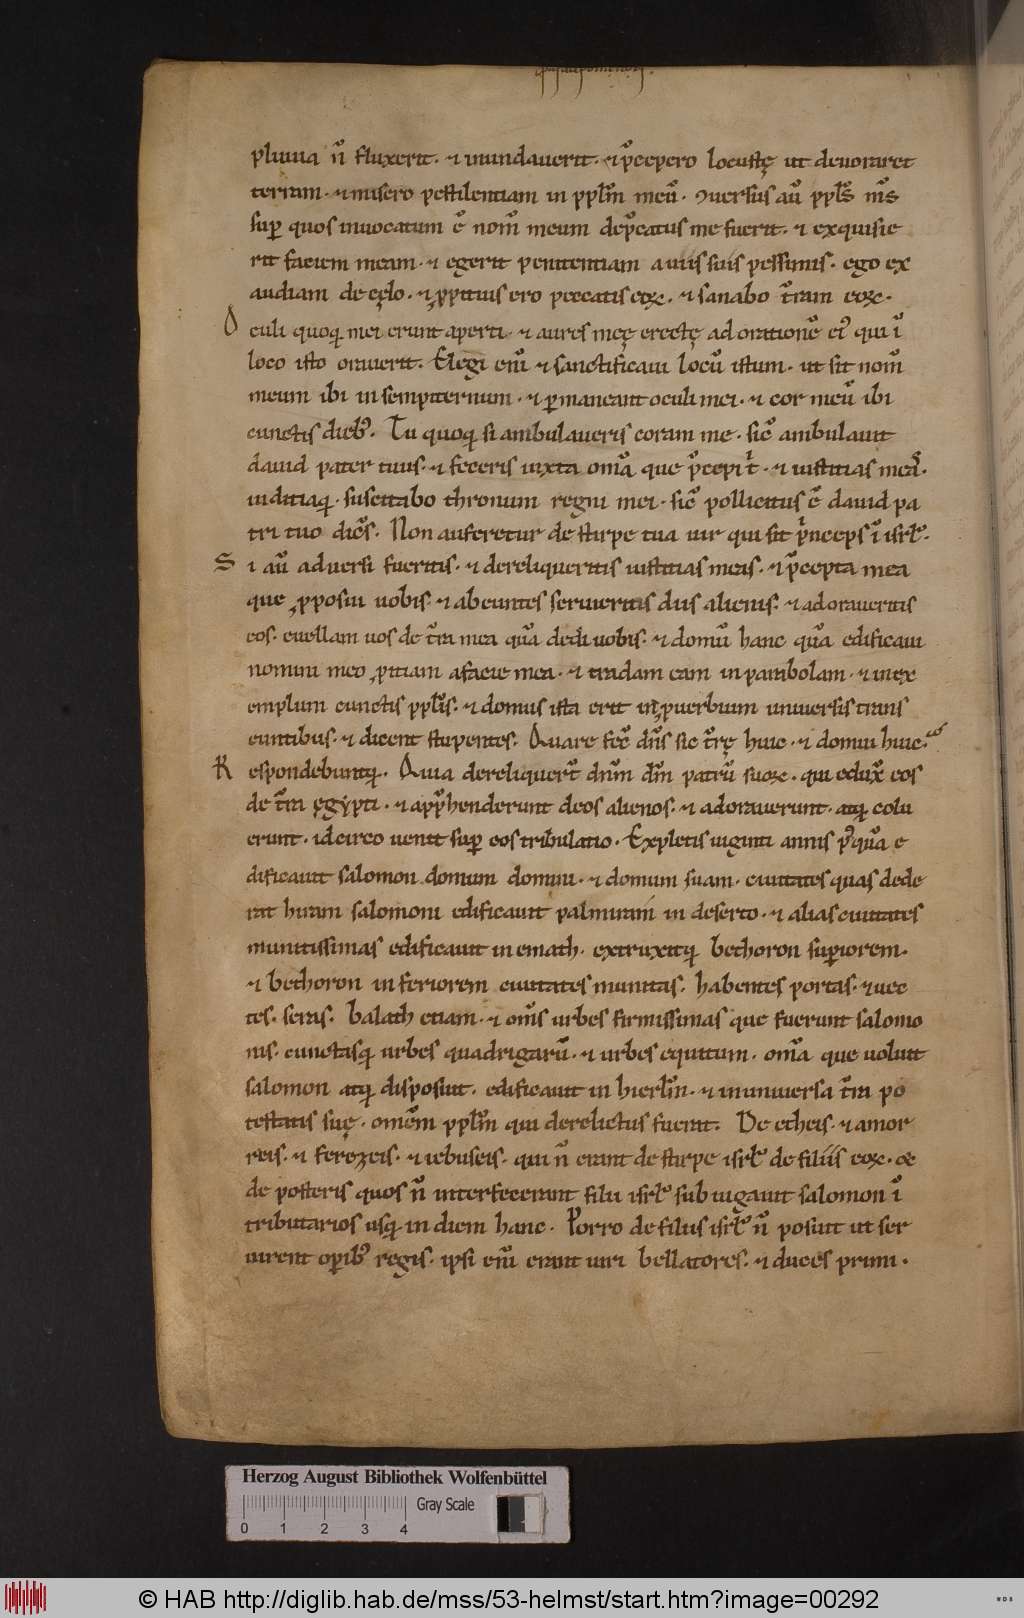 pluuia n̄ fluxerit· ⁊ inundauerit· ⁊ p̄cepero locustę ut deuoraret
terram· ⁊ misero pestilentiam in pplm̄ meū· ꝯuersus aū ppl's m̄s
sup̱ quos inuocatum ē nom̄ meum dep̄catus me fuerit· ⁊ exquisie
rit faciem meam· ⁊ egerit penitentiam a uiis suis pessimis· ego ex
audiam de cęlo· ⁊ ꝓpitius ero peccatis eoꝝ· ⁊ sanabo t̄ram eoꝝ·
O culi quoq; mei erunt aperti· ⁊ aures meę erectę ad orationē ei' qui ī
loco isto orauerit. Elegi eni̅ ⁊ sanctificaui locū istum· ut sit nom̄
meum ibi in sempiternum· ⁊ ꝑmaneant oculi mei· ⁊ cor meū ibi
cunctis dieb;. Tu quoq; si ambulaueris coram me· sic̄ ambulauit
dauid pater tuus· ⁊ feceris iuxta om̄a que p̄cepi t̄· ⁊ iustitias meā·
iuditiaq;· suscitabo thronum regni mei· sic̄ pollicitus ē dauid pa
tri tuo dic̄s· Non auferetur de stirpe tua uir qui sit p̄nceps ī isrl'·
S i aū aduersi fueritis· ⁊ dereliqueritis iustitias meas· ⁊ p̄cepta mea
que ꝓposui uobis· ⁊ abeuntes serueritis diis alienis· ⁊ adoraueritis
eos· euellam uos de t̄ra mea quā dedi uobis· ⁊ domū hanc quā edificaui
nomini meo ꝓitiam a facie mea· ⁊ tradam eam in parabolam· ⁊ in ex
emplum cunctis ppl'is· ⁊ domus ista erit in ꝓuerbium uniuersis trans
euntibus· ⁊ dicent stupentes· Quare fec̄ dn̄s sic t̄rę huic· ⁊ domui huic·
R espondebuntq;· Quia dereliquer̄t dn̄m dm̄ patrū suoꝝ· qui edux̄ eos
de t̄ra ęgypti· ⁊ app̄henderunt deos alienos· ⁊ adorauerunt· atq; colu
erunt· idcirco uenit sup̱ eos tribulatio· Expletis uiginti annis p'quā e
dificauit salomon domum domini· ⁊ domum suam· ciuitates quas dede
rat hiram salomoni edificauit palmiram in deserto· ⁊ alias ciuitates
munitissimas edificauit in emath· extruxitq; bethoron sup̱iorem·
⁊ bethoron inferiorem ciuitates munitas· habentes portas· ⁊ uec
tes· seras· balath etiam· ⁊ om̄s urbes firmissimas que fuerunt salomo
nis· cunctasq; urbes quadrigarū· ⁊ urbes equitum· om̄a que uoluit
salomon atq; disposuit· edificauit in hierl'm· ⁊ in uniuersa t̄ra po
testatis suę· omēm pplm̄ qui derelictus fuerat· De etheis· ⁊ amor
reis· ⁊ ferezeis· ⁊ iebuseis· qui n̄ erant de stirpe isrl' de filiis eoꝝ·
de posteris quos n̄ interfecerant filii isrl' subiugauit salomon ī
tributarios usq; in diem hanc· Porro de filiis isrl' n̄ posuit ut ser
uirent oꝑib; regis· ipsi eni̅ erant uiri bellatores· ⁊ duces primi·
Herzog August Bibliothek Wolfenbüttel
Gray Scale
0 1 2 3 4
© HAB http://diglib.hab.de/mss/53-helmst/start.htm?image=00292